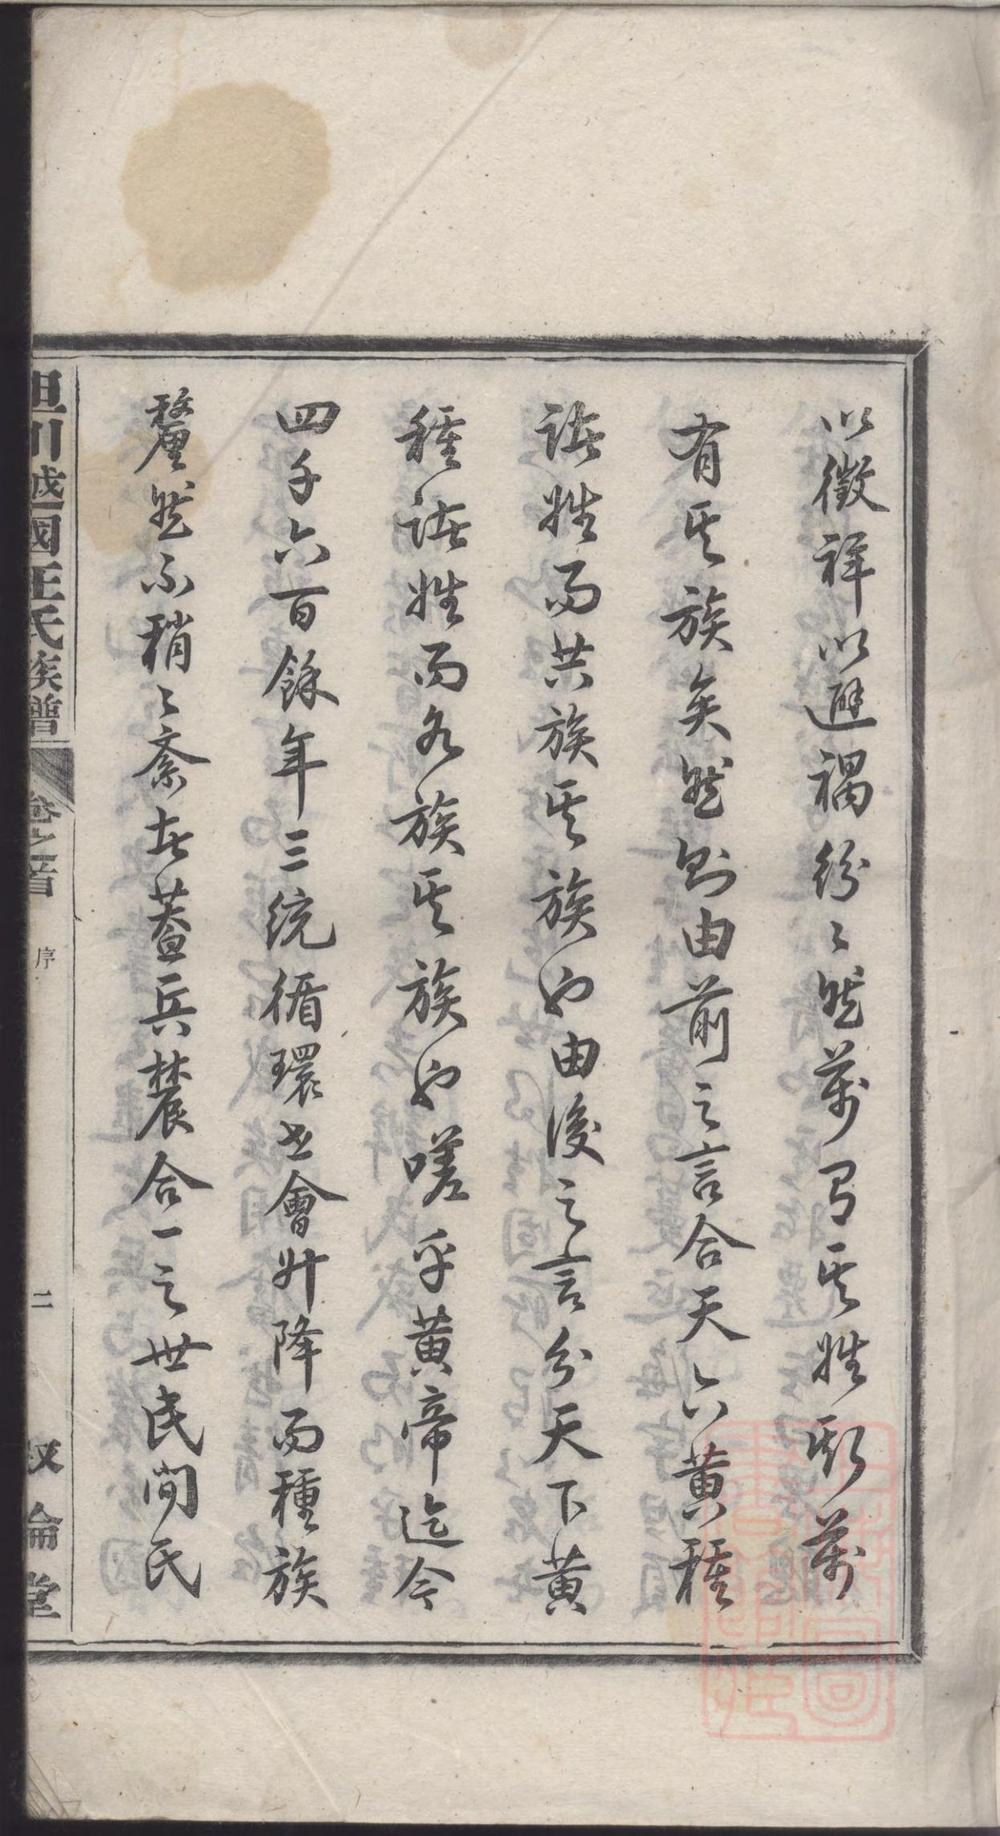 以徵祥以避禍紛々然萬有其姓斯萬
有其族矣然則由前之言合天下黃種
諸姓而共族其族也由後之言分天下黃
種諸姓而各族其族也嗟乎黃帝迄今
四千六百餘年三統循環世會升降而種族
釐然不稍々紊者蓋兵農合一之世民間氏
坦川越國汪氏族譜 卷之首 序 二 敘倫堂